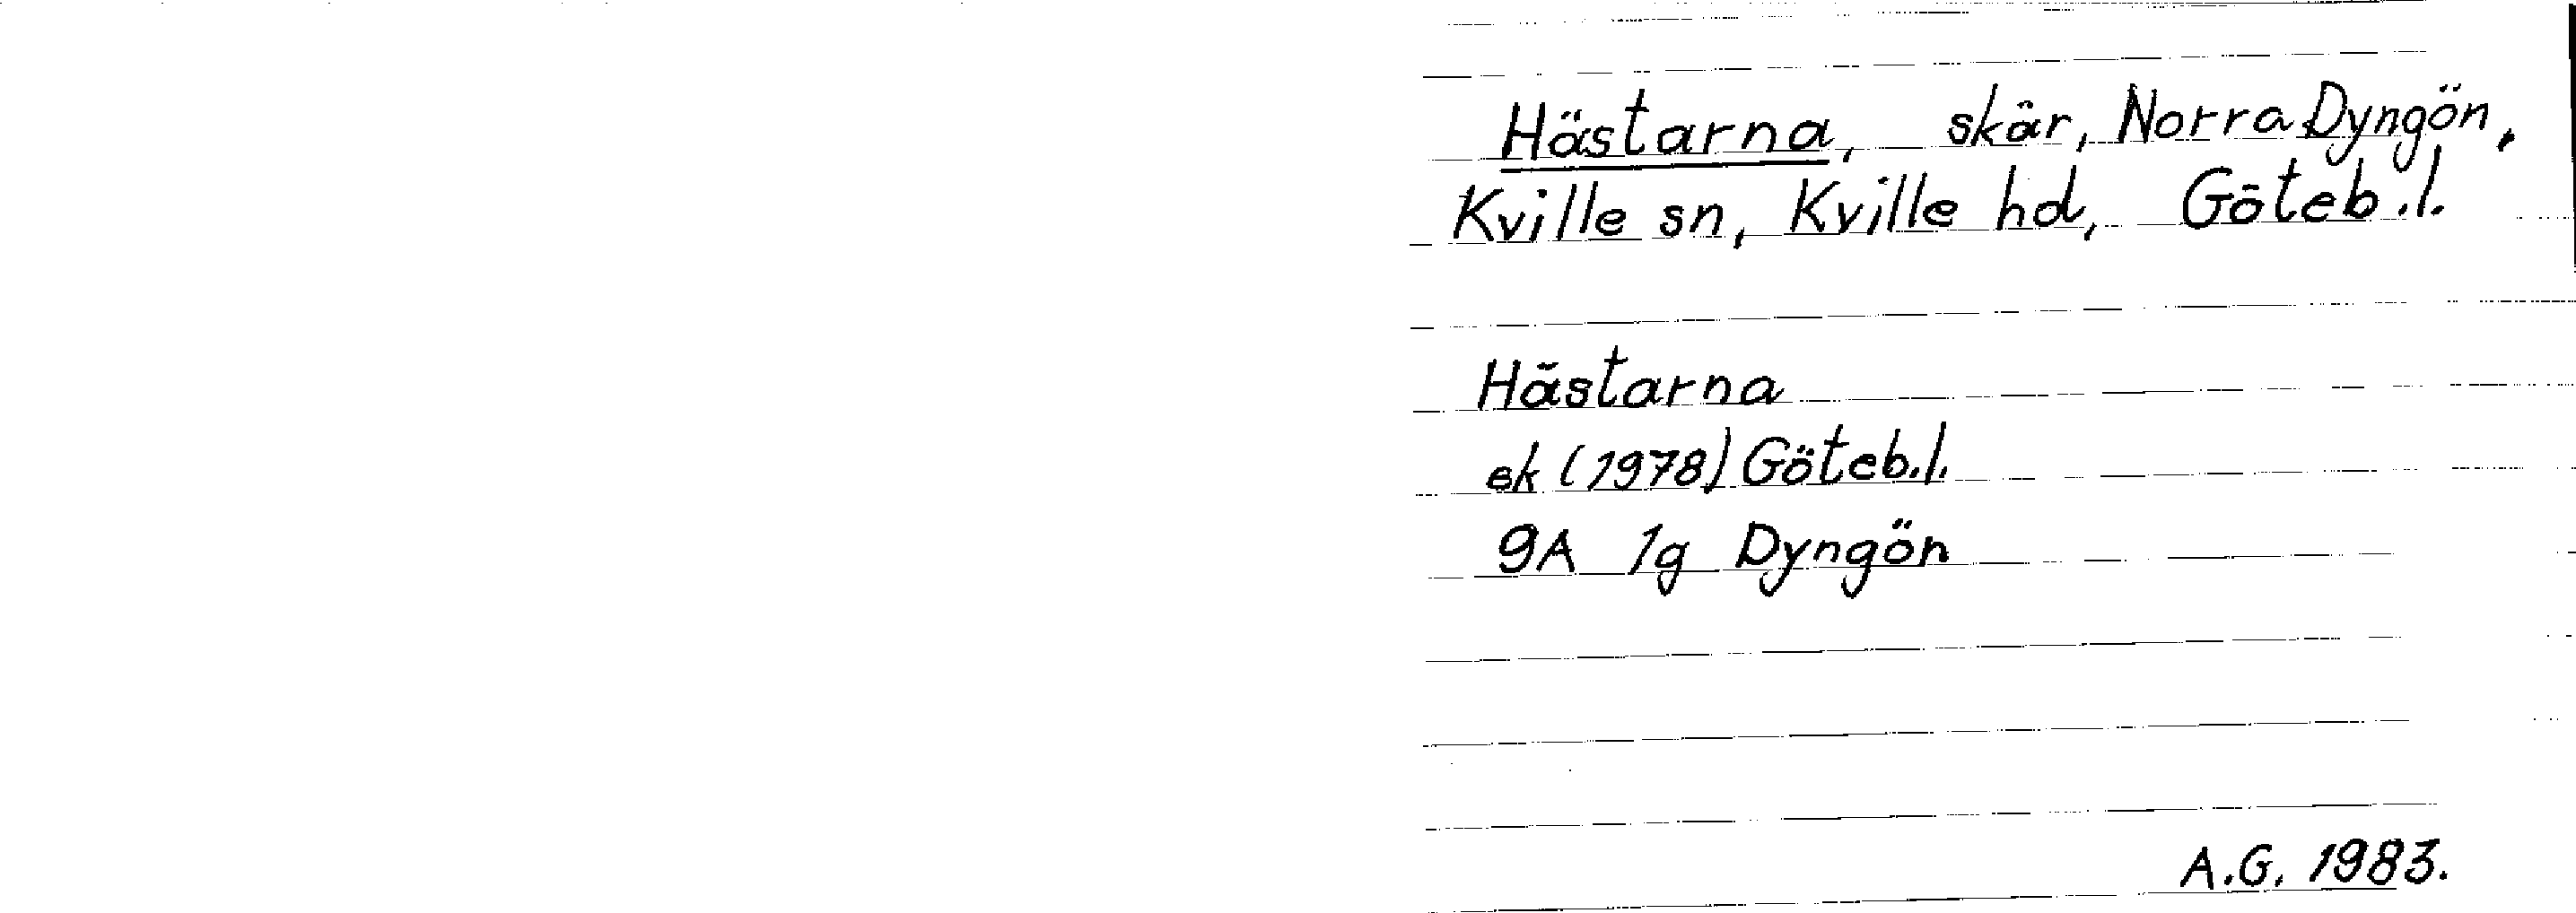 Hästarna, skär, Norra Dyngön,
Kville sn, Kville hd, Göteb.l.
Hästarna
ek (1978) Göteb.l.
9A 1g Dyngön
A.G. 1983.